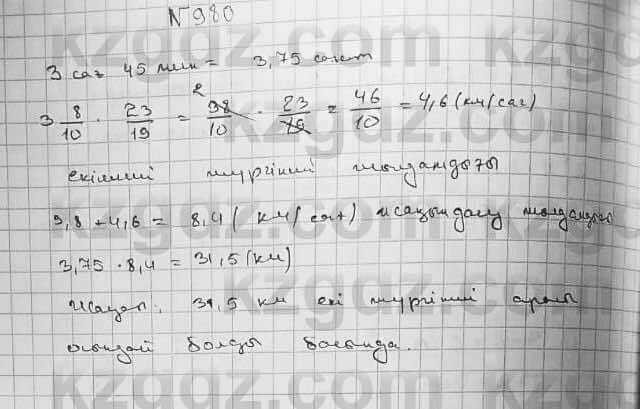 №980
3 сағ 45 мин = 3,75 сағат
3 8/10 · 23/19 = 38/10 · 23/19 = 46/10 = 4,6 (км/сағ)
екінші жүргінші жылдамдығы
3,8 + 4,6 = 8,4 ( км/сағ) жақындасу жылдамдығы
3,75 · 8,4 = 31,5 (км)
Жауап: 31,5 км екі жүргінші арасы
осындай болды басында.
kzgdz.com